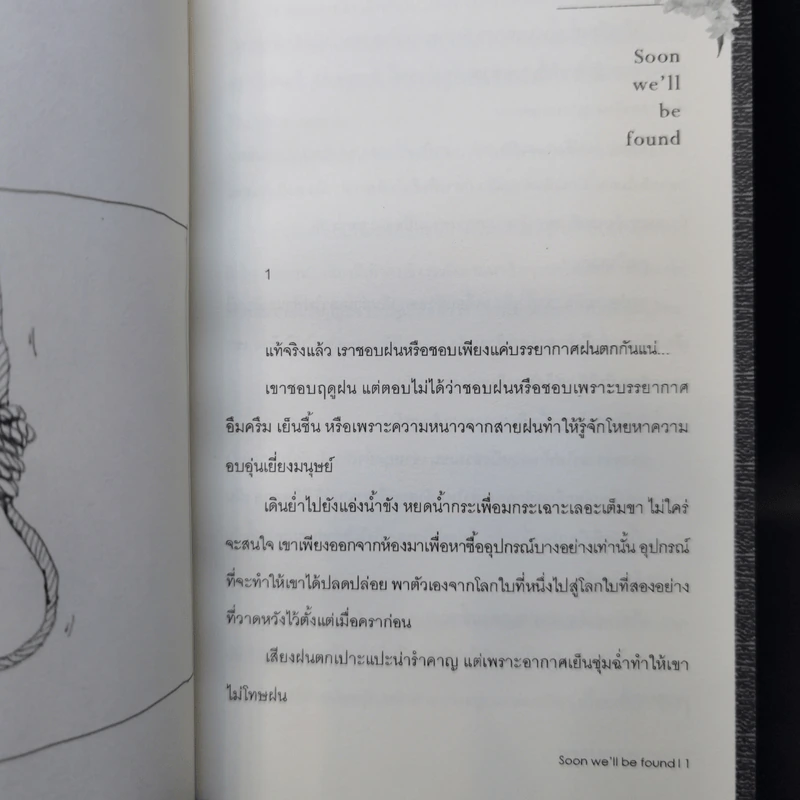 Soon
we'll
be
found
1
แท้จริงแล้ว เราชอบฝนหรือชอบเพียงแค่บรรยากาศฝนตกกันแน่...
เขาชอบฤดูฝน แต่ตอบไม่ได้ว่าชอบฝนหรือชอบเพราะบรรยากาศ
อึมครึม เย็นชื้น หรือเพราะความหนาวจากสายฝนทำให้รู้จักโหยหาความ
อบอุ่นเยี่ยงมนุษย์
เดินย่ำไปยังแอ่งน้ำขัง หยดน้ำกระเพื่อมกระเฉาะเลอะเต็มขา ไม่ใคร่
จะสนใจ เขาเพียงออกจากห้องมาเพื่อหาซื้ออุปกรณ์บางอย่างเท่านั้น อุปกรณ์
ที่จะทำให้เขาได้ปลดปล่อย พาตัวเองจากโลกใบที่หนึ่งไปสู่โลกใบที่สองอย่าง
ที่วาดหวังไว้ตั้งแต่เมื่อคราก่อน
เสียงฝนตกเปาะแปะน่ารำคาญ แต่เพราะอากาศเย็นชุ่มฉ่ำทำให้เขา
ไม่โทษฝน
Soon we'll be found | 1